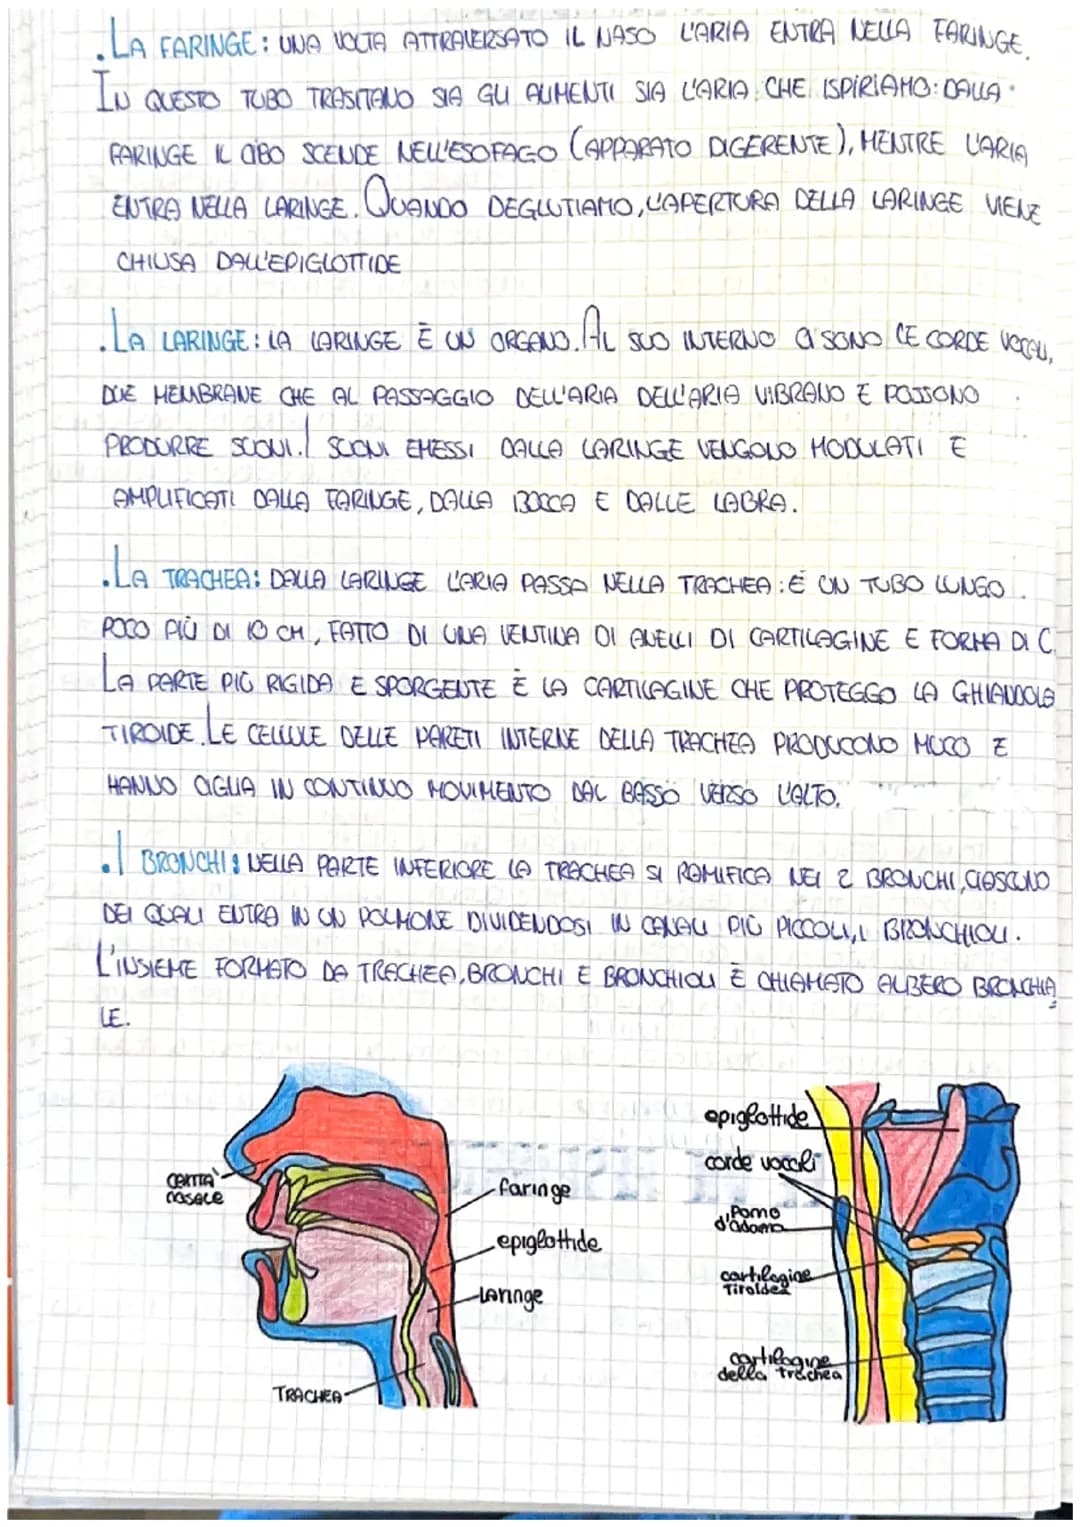 .LA FARINGE: UNA VOLTA ATTRAVERSATO IL NASO L'ARIA ENTRA NELLA FARINGE.
IN QUESTO TUBO TRASITANO SIA GLI ALIMENTI SIA L'ARIA CHE ISPIRIAMO: DALLA
FARINGE IL CIBO SCENDE NELL'ESOFAGO (APPARATO DIGERENTE), MENTRE L'ARIA
ENTRA NELLA LARINGE. QUANDO DEGLUTIAMO, L'APERTURA DELLA LARINGE VIENE
CHIUSA DALL'EPIGLOTTIDE
.LA LARINGE: LA LARINGE È UN ORGANO. AL SUO INTERNO CI SONO LE CORDE VOCALI,
DUE MEMBRANE CHE AL PASSAGGIO DELL'ARIA DELL'ARIA VIBRANO E POSSONO
PRODURRE SUONI. I SUONI EMESSI DALLA LARINGE VENGONO MODULATI E
AMPLIFICATI DALLA FARINGE, DALLA BOCCA E DALLE LABRA.
.LA TRACHEA: DALLA LARINGE L'ARIA PASSA NELLA TRACHEA: È UN TUBO LUNGO
POCO PIÙ DI 10 CM, FATTO DI UNA VENTINA DI ANELLI DI CARTILAGINE E FORMA DI C.
LA PARTE PIÙ RIGIDA E SPORGENTE È LA CARTILAGINE CHE PROTEGGO LA GHIANDOLA
TIROIDE. LE CELLULE DELLE PARETI INTERNE DELLA TRACHEA PRODUCONO MUCO E
HANNO CIGLIA IN CONTINUO MOVIMENTO DAL BASSO VERSO L'ALTO.
.I BRONCHI: NELLA PARTE INFERIORE LA TRACHEA SI RAMIFICA NEI 2 BRONCHI, CIASCUNO
DEI QUALI ENTRA IN UN POLMONE DIVIDENDOSI IN CANALI PIÙ PICCOLI, I BRONCHIOLI.
L'INSIEME FORMATO DA TRACHEA, BRONCHI E BRONCHIOLI È CHIAMATO ALBERO BRONCHIA
LE.
nasale
faringe
epiglottide
LARINGE
TRACHEA
epiglottide
corde vocali
Pomo
d'adamo
cartilagine
Tiroidea
cartilagine
della trachea